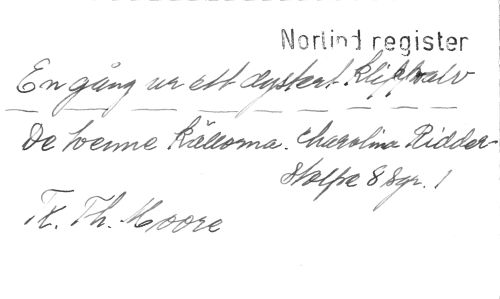 Norlind register
En gång ur ett dystert klippvalv
De tvenne källorna. Charolina Ridder-
stolpe 8 Sgr. 1
Tx. Th. Moore